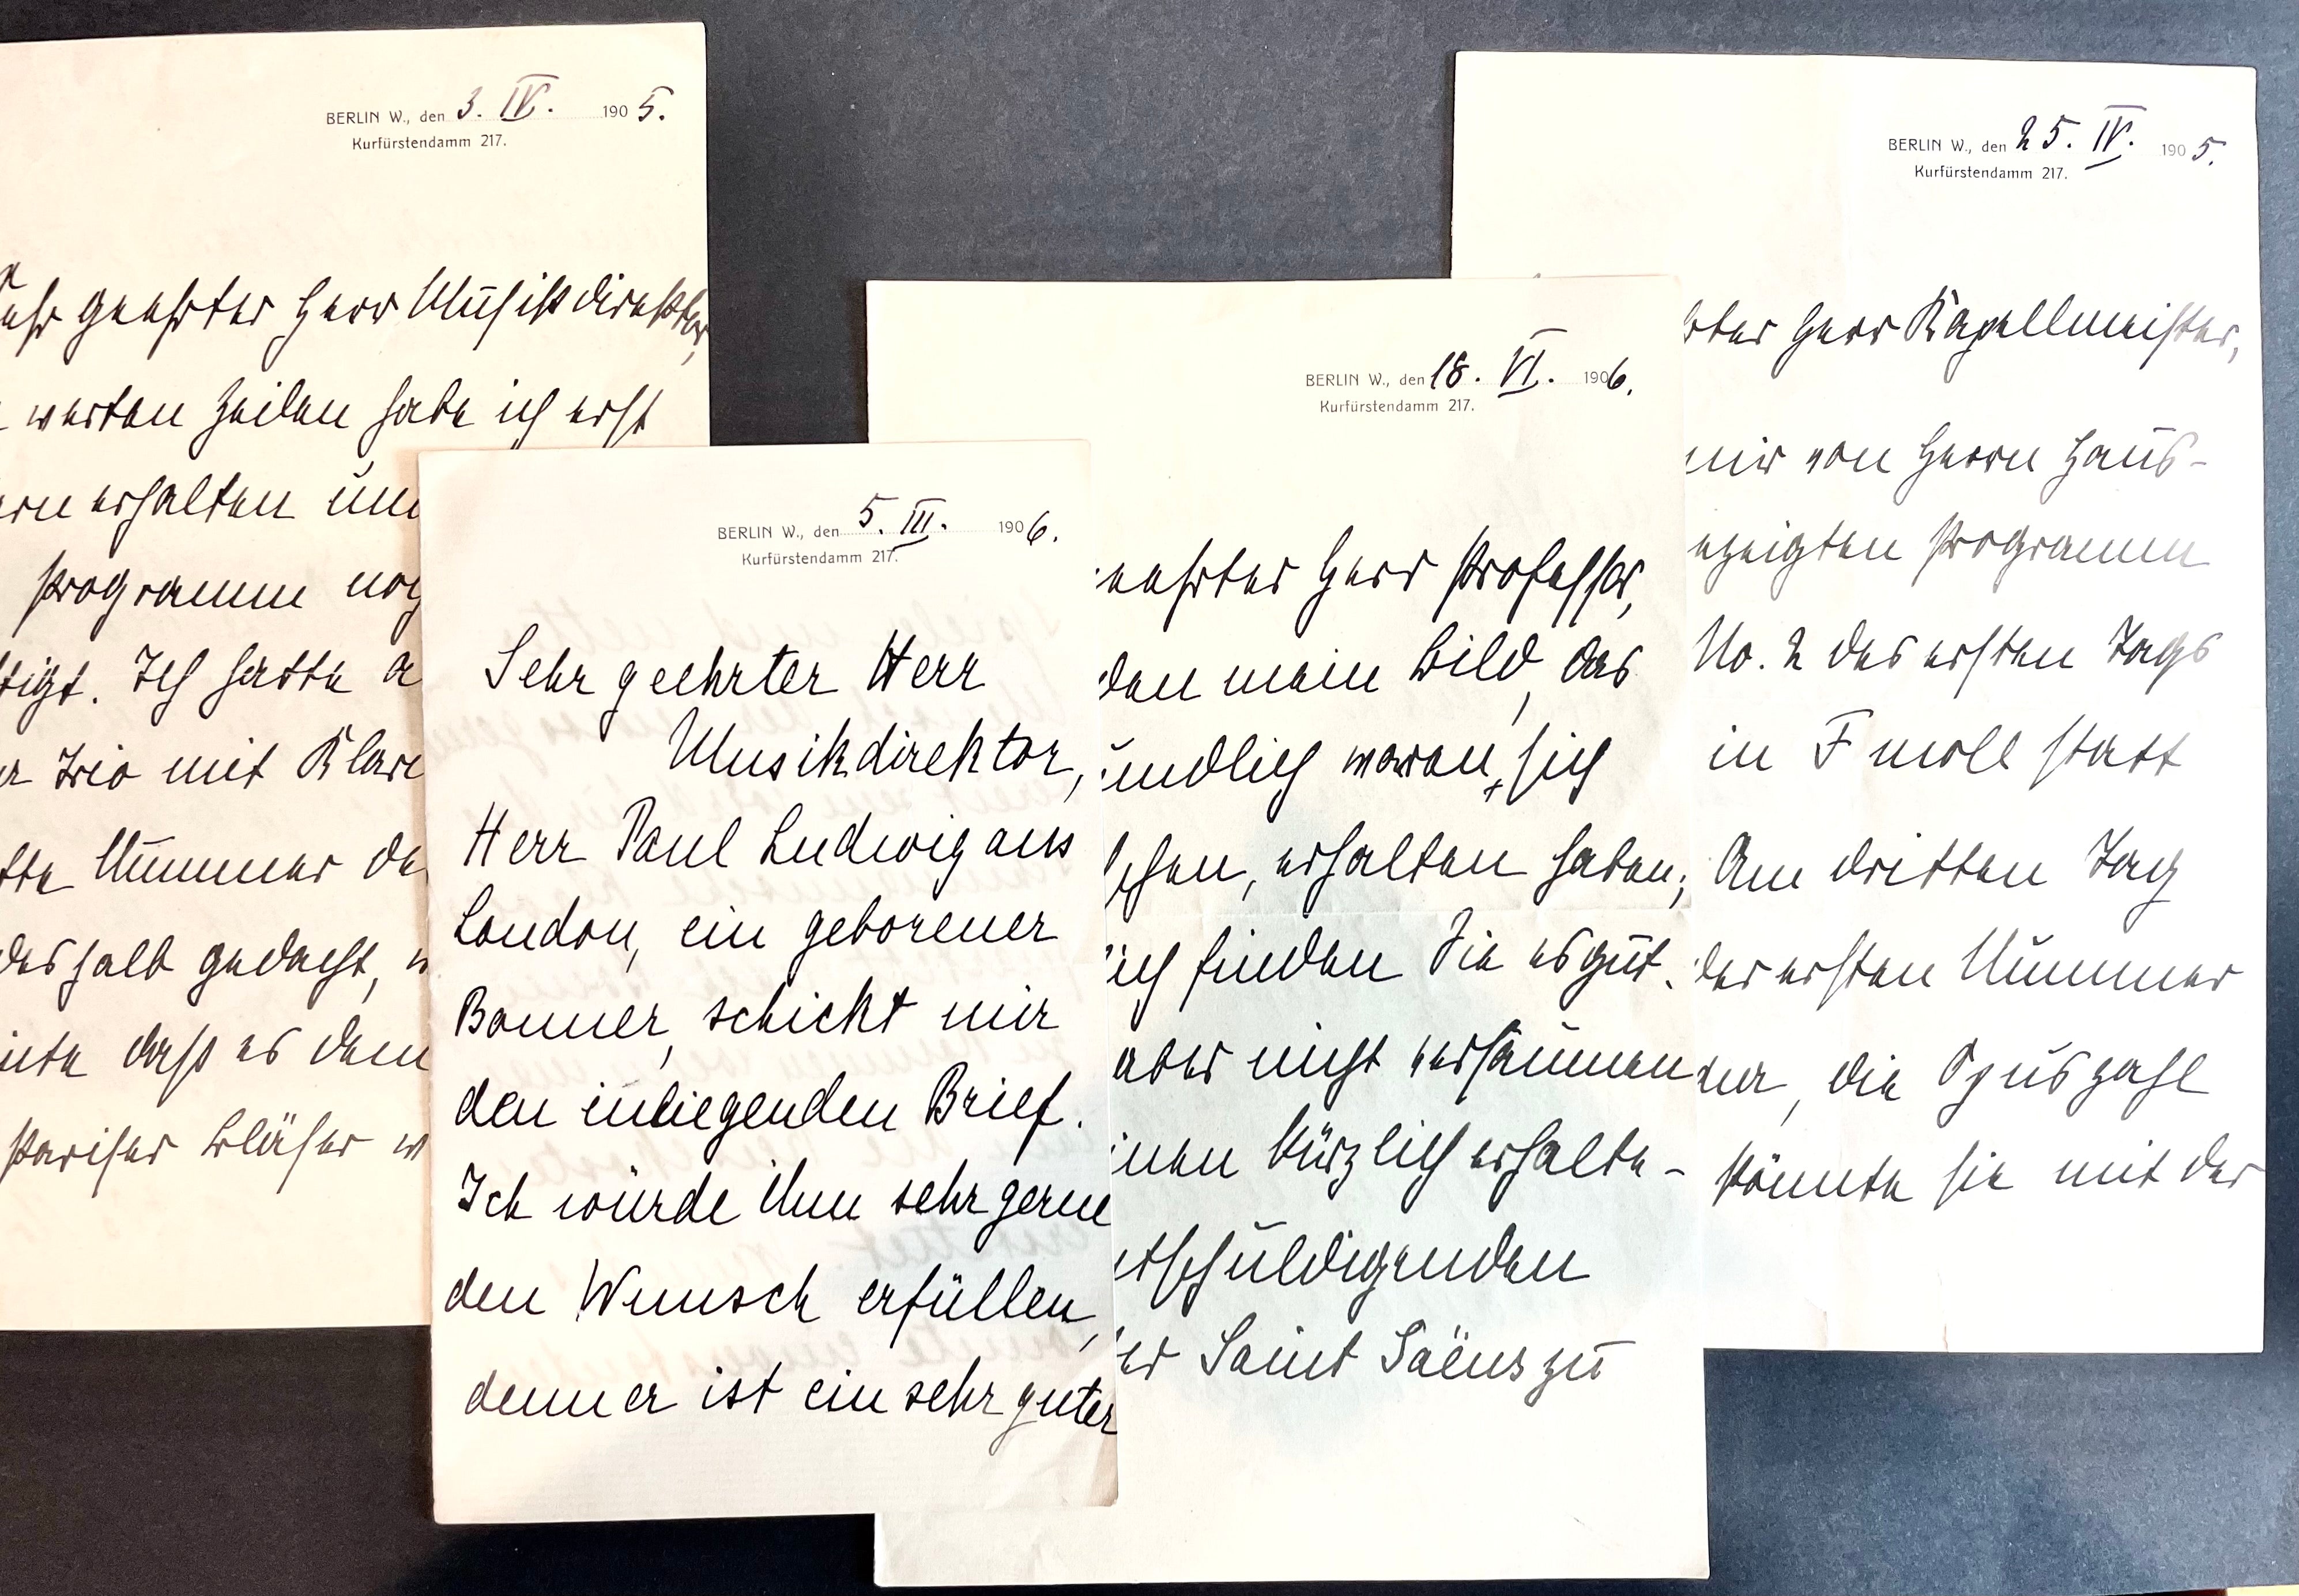 BERLIN W., den 3. IV. 1905.
Kurfürstendamm 217.
geehrter Herr Musikdirektor,
werten Zeilen habe ich erst
erhalten und
Programm noch
Ich hatte a
Trio mit Klari
Nummer de
deshalb gedacht, w
daß es dem
Pariser Bläser w
BERLIN W., den 5. III. 1906.
Kurfürstendamm 217.
Sehr geehrter Herr
Musikdirektor,
Herr Paul Ludwig aus
London, ein geborener
Bonner, schickt mir
den inliegenden Brief.
Ich würde ihm sehr gerne
den Wunsch erfüllen,
denn er ist ein sehr guter
BERLIN W., den 18. VI. 1906.
Kurfürstendamm 217.
eehrter Herr Professor,
den mein Bild, das
undlich waren, sich
schen, erhalten haben;
ich finden Sie es gut.
aber nicht versäumen
inen kürzlich erhalte-
tschuldigenden
er Saint Saëns zu
BERLIN W., den 25. IV. 1905.
Kurfürstendamm 217.
rter Herr Kapellmeister,
mir von Herrn Haus-
ezeigten Programm
No. 2 des ersten Tags
in F moll statt
Am dritten Tag
der ersten Nummer
die Opuszahl
könnte sie mit der